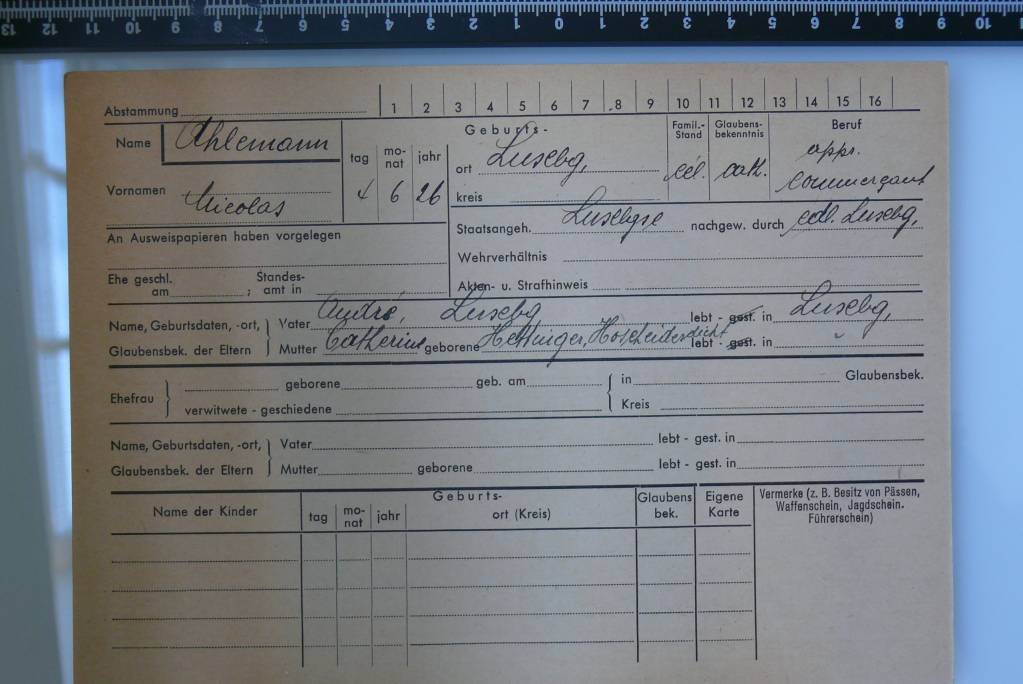 13 12 11 10 9 8 7 6 5 4 3 2 1 0 1 2 3 4 5 6 7 8 9 10
Abstammung 1 2 3 4 5 6 7 8 9 10 11 12 13 14 15 16
Name Ahlemann
Vornamen Nicolas
Geburts-
tag mo-nat jahr
4 6 26
ort Luxebg,
kreis
Famil.-Stand
cél.
Glaubens-bekenntnis
cath.
Beruf
appr.
commerçant
An Ausweispapieren haben vorgelegen
Staatsangeh. Luxbgse nachgew. durch edl. Luxebg,
Wehrverhältnis
Ehe geschl. am ; Standes-amt in
Akten- u. Strafhinweis
Name, Geburtsdaten, -ort, Vater André, Luxebg lebt - gest. in Luxebg,
Glaubensbek. der Eltern Mutter Catherine geborene Hettinger, lebt - gest. in "
Ehefrau geborene geb. am in Glaubensbek.
verwitwete - geschiedene Kreis
Name, Geburtsdaten, -ort, Vater lebt - gest. in
Glaubensbek. der Eltern Mutter geborene lebt - gest. in
Name der Kinder
Geburts-
tag mo-nat jahr ort (Kreis)
Glaubens bek.
Eigene Karte
Vermerke (z. B. Besitz von Pässen,
Waffenschein, Jagdschein.
Führerschein)